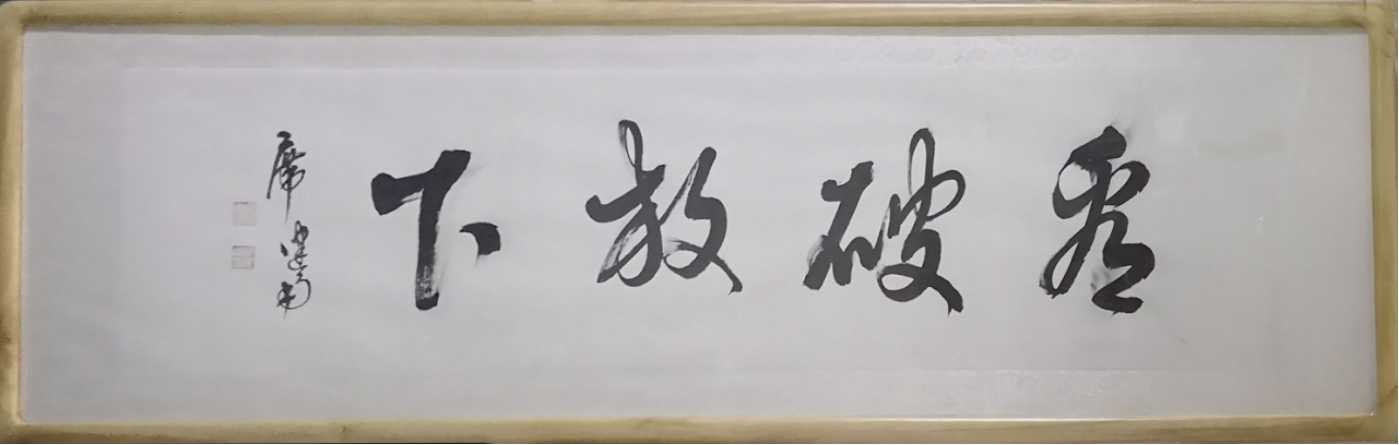 看破放下